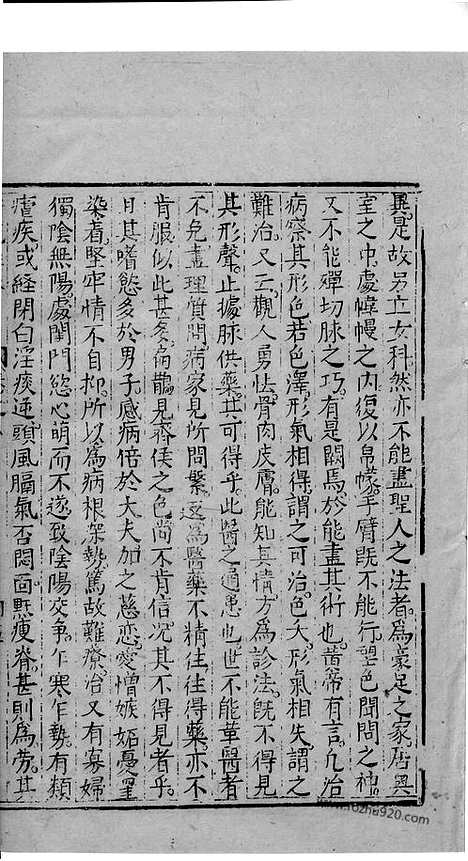 異是故另立女科然亦不能盡聖人之法者為豪足之家居奧
室之中處幃幔之內復以帛幪手臂既不能行望色聞問之神
又不能殫切脉之巧有是闕焉於能盡其術也黄帝有言凡治
病察其形色若色澤形氣相得謂之可治色夭形氣相失謂之
難治又云觀人勇怯骨肉皮膚能知其情方為診法既不得見
其形聲止據脉供藥其可得乎此醫之通患也世不能革醫者
不免盡理質問病家見所問繁遂為醫藥不精往往得藥亦不
肯服似此甚多扁鵲見齊侯之色尚不肯信况其不得見者乎
日其嗜慾多於男子感病倍於大夫加之慈恋愛憎嫉妬憂
染着堅牢情不自抑所以為病根深勢篤故難療治又有寡婦
獨陰無陽處閨門慾心萌而不遂致陰陽交争乍寒乍熱有類
瘧疾或經閉白淫痰逆頭風膈氣否悶面䵟瘦脊甚則為劳其
www.fozhu920.com